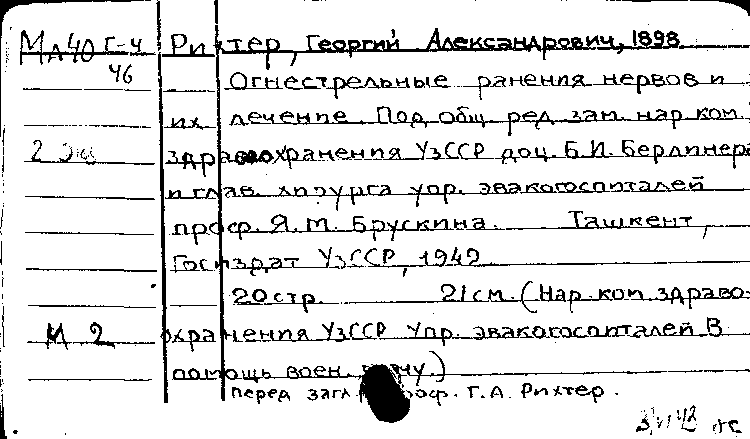 Мл40 Г-4 Рихтер, Георгий Александрович, 1898
46
Огнестрельные ранения нервов и
их лечение. Под общ. ред. зам. нар. ком.
2 экз здравоохранения УзССР доц. Б.И. Берлинера
и глав. хирурга упр. эвакогоспиталей
проф. Я.М. Брускина. Ташкент,
Госиздат УзССР, 1942
20 стр. 21 см. (Нар. ком. здраво-
М 2 охранения УзССР Упр. эвакогоспиталей В
помощь воен. врачу.)
перед загл. проф. Г.А. Рихтер.